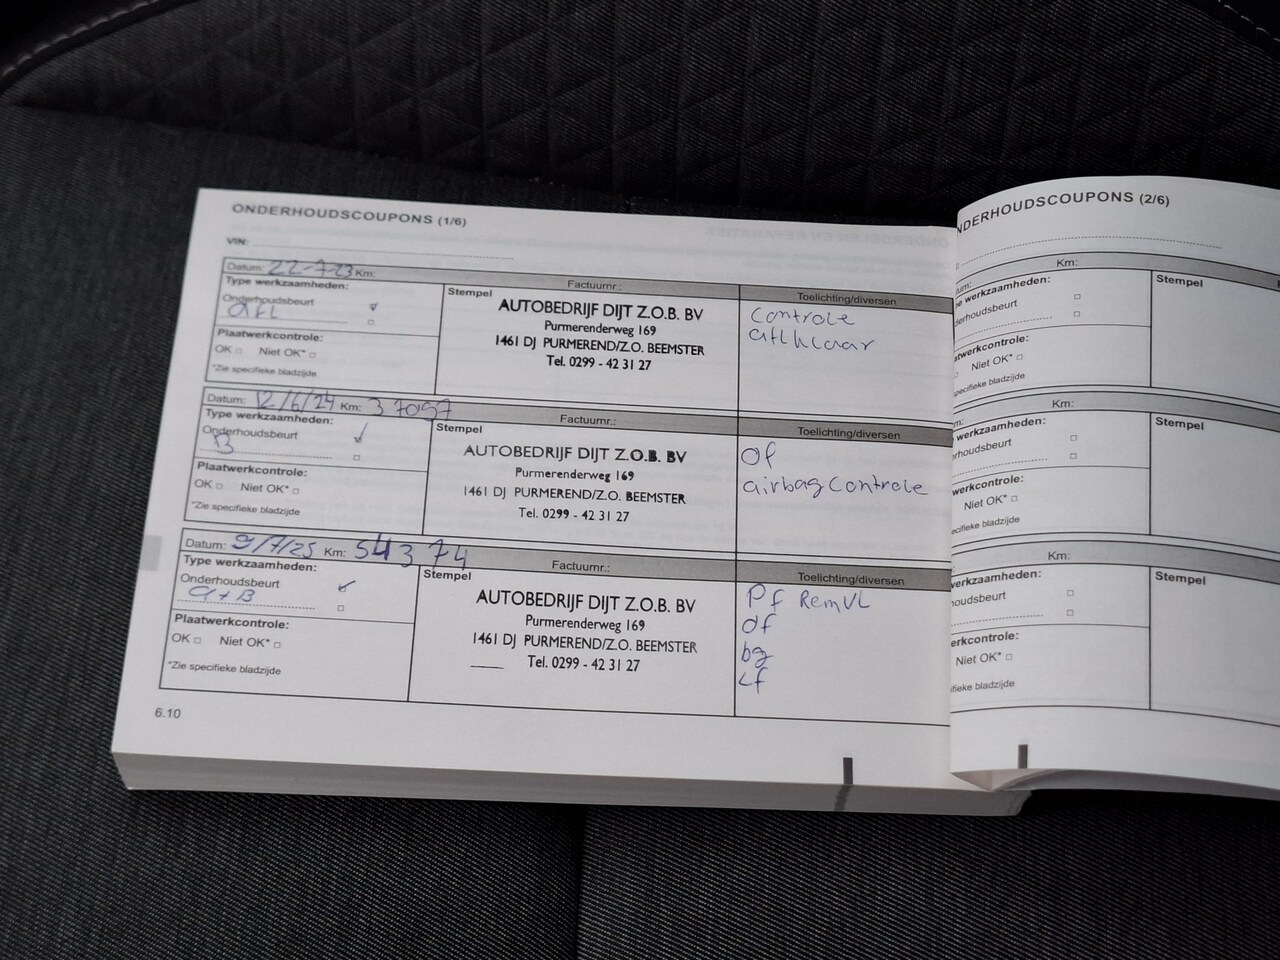 ONDERHOUDSCOUPONS (1/6)
VIN:
Datum: 22-7-23 Km:
Factuurnr.:
Toelichting/diversen
Type werkzaamheden:
Onderhoudsbeurt
afl
Plaatwerkcontrole:
OK Niet OK*
*Zie specifieke bladzijde
Stempel
AUTOBEDRIJF DIJT Z.O.B. BV
Purmerenderweg 169
1461 DJ PURMEREND/Z.O. BEEMSTER
Tel. 0299 - 42 31 27
Controle
aflklaar
Datum: 12/6/24 Km: 37097
Factuurnr.:
Toelichting/diversen
Type werkzaamheden:
Onderhoudsbeurt
B
Plaatwerkcontrole:
OK Niet OK*
*Zie specifieke bladzijde
Stempel
AUTOBEDRIJF DIJT Z.O.B. BV
Purmerenderweg 169
1461 DJ PURMEREND/Z.O. BEEMSTER
Tel. 0299 - 42 31 27
of
airbag controle
Datum: 9/7/25 Km: 54374
Factuurnr.:
Toelichting/diversen
Type werkzaamheden:
Onderhoudsbeurt
a+B
Plaatwerkcontrole:
OK Niet OK*
*Zie specifieke bladzijde
Stempel
AUTOBEDRIJF DIJT Z.O.B. BV
Purmerenderweg 169
1461 DJ PURMEREND/Z.O. BEEMSTER
Tel. 0299 - 42 31 27
Pf RemVL
of
bg
Lf
6.10
NDERHOUDSCOUPONS (2/6)
um: Km:
e werkzaamheden:
derhoudsbeurt
atwerkcontrole:
Niet OK*
specifieke bladzijde
Stempel
m: Km:
werkzaamheden:
rhoudsbeurt
werkcontrole:
Niet OK*
ecifieke bladzijde
Stempel
Km:
erkzaamheden:
houdsbeurt
erkcontrole:
Niet OK*
ifieke bladzijde
Stempel